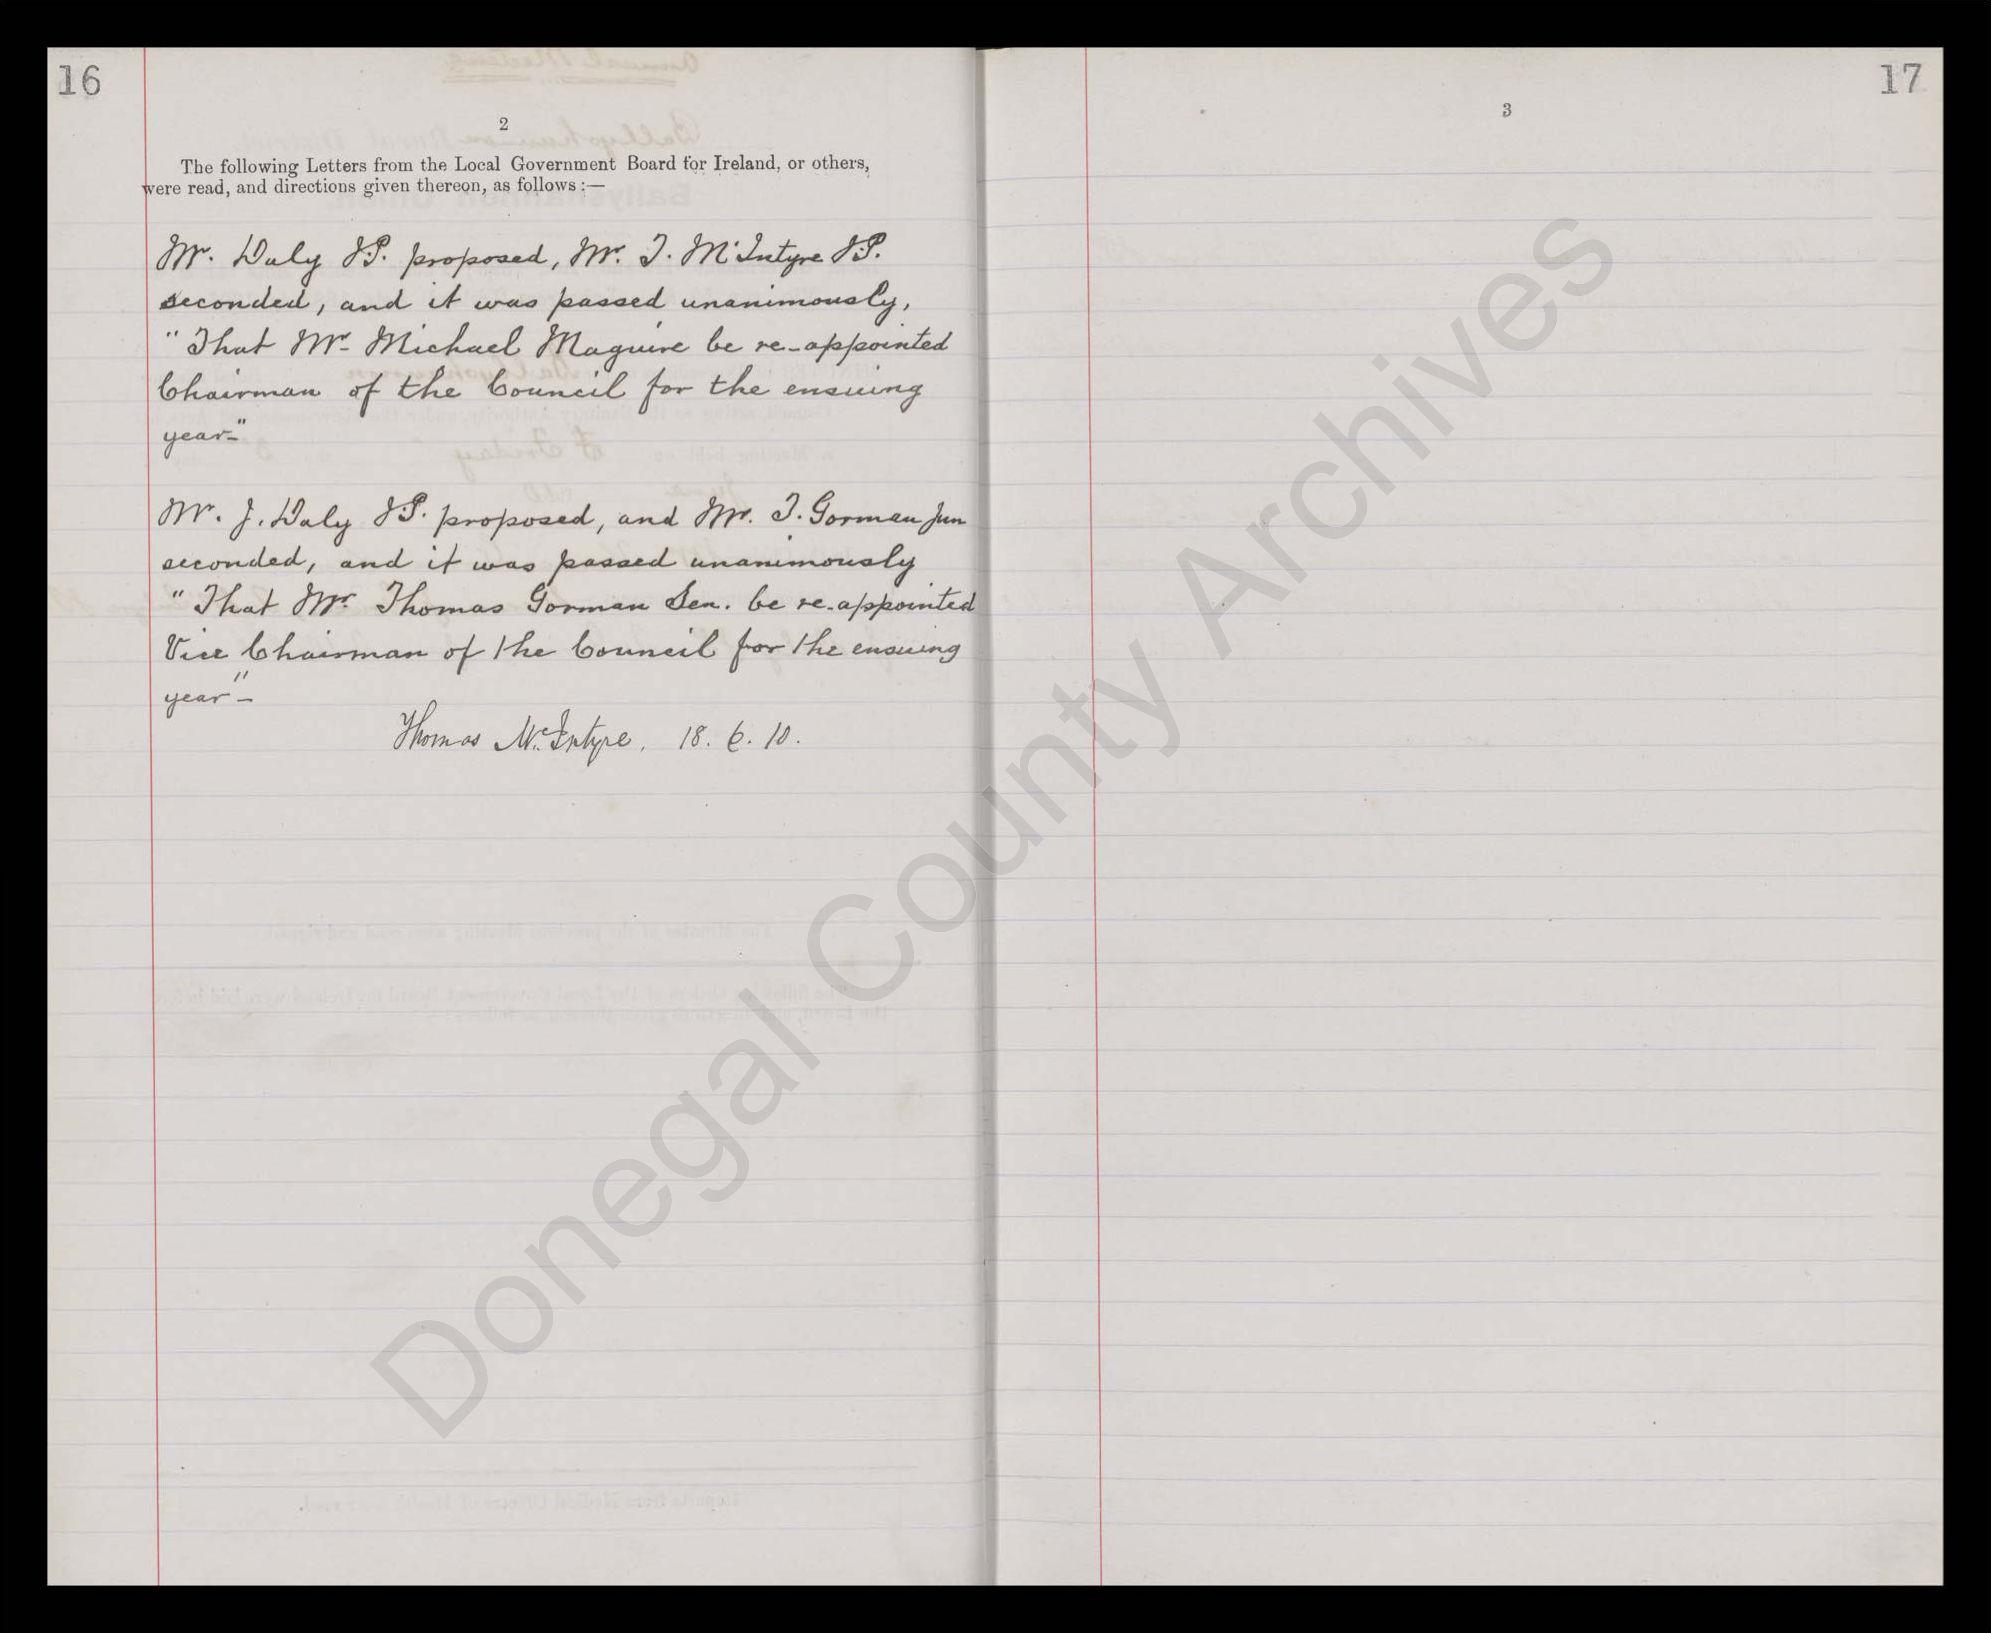 16
2
The following Letters from the Local Government Board for Ireland, or others,
were read, and directions given thereon, as follows :—
Mr. Daly J.P. proposed, Mr. T. McIntyre J.P.
seconded, and it was passed unanimously,
"That Mr. Michael Maguire be re-appointed
Chairman of the Council for the ensuing
year-"
Mr. J. Daly J.P. proposed, and Mr. T. Gorman Jun
seconded, and it was passed unanimously
"That Mr. Thomas Gorman Sen. be re-appointed
Vice Chairman of the Council for the ensuing
year" -
Thomas McIntyre. 18. 6. 10.
17
3
Donegal County Archives